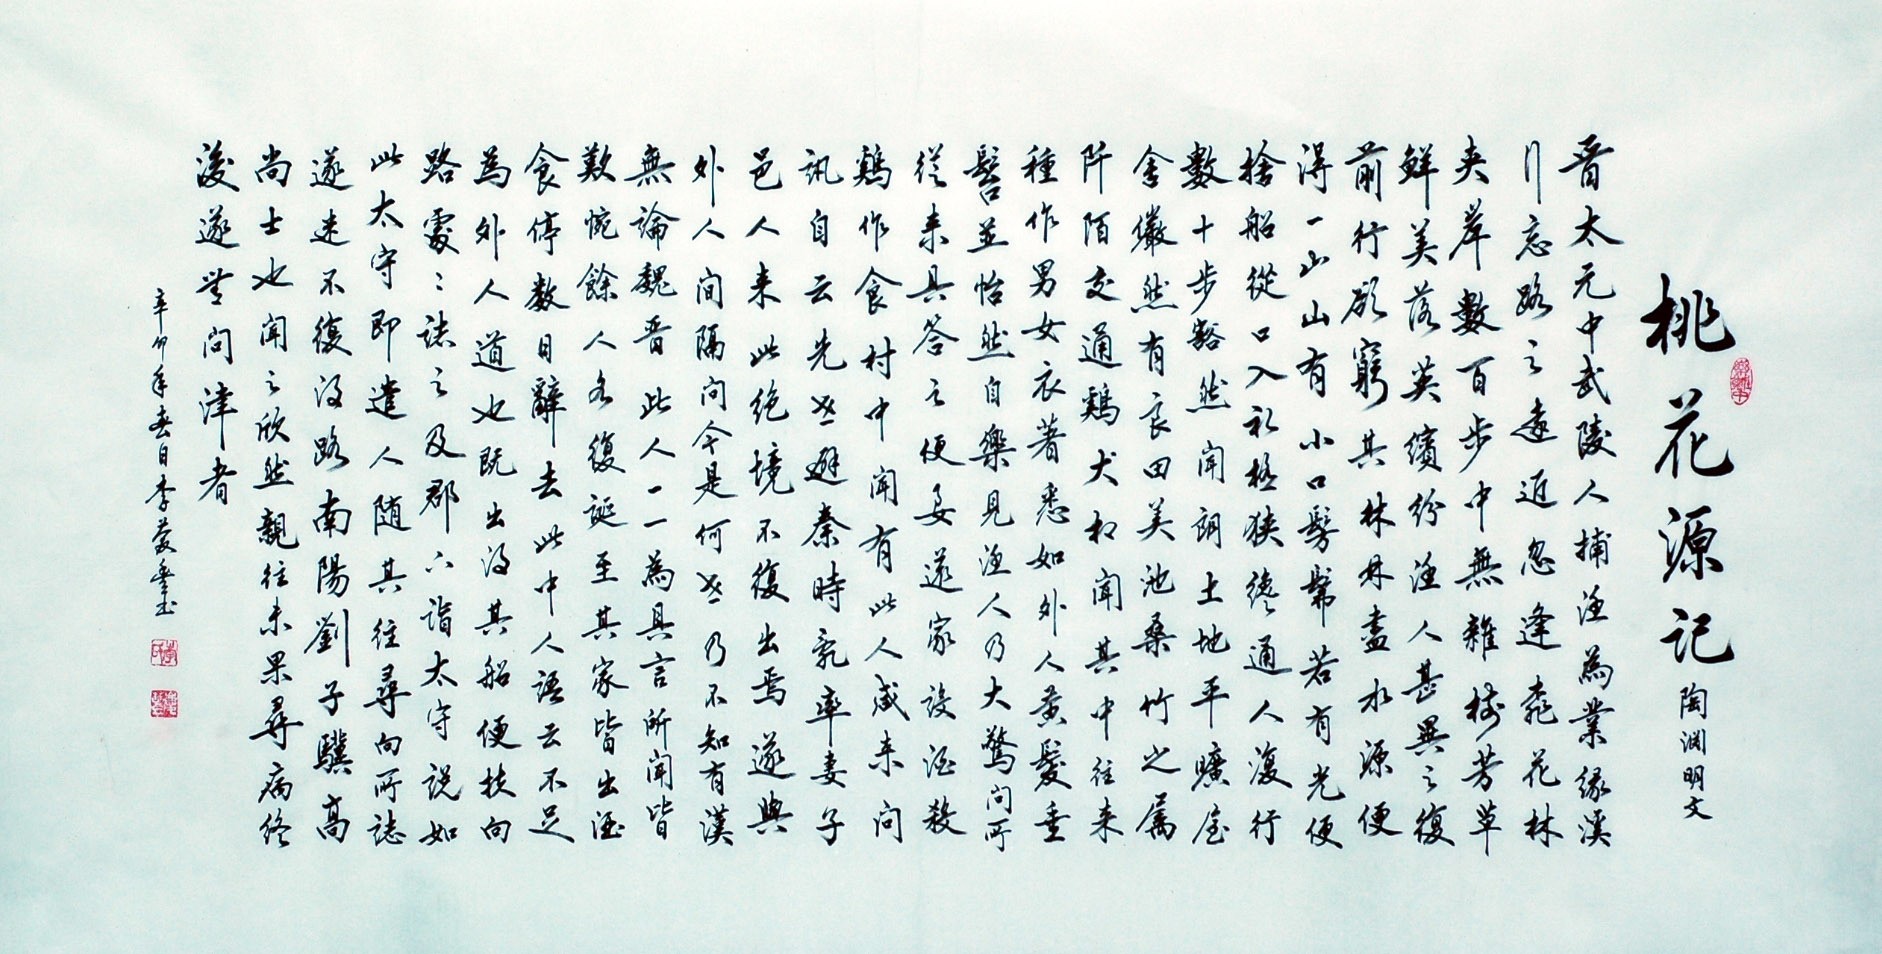 桃花源记
陶渊明文
晋太元中武陵人捕渔為業缘溪
行忘路之遠近忽逢桃花林
夹岸數百步中無雜樹芳草
鮮美落英繽纷渔人甚異之復
前行欲窮其林林盡水源便
得一山山有小口髣髴若有光便
捨船從口入初極狭纔通人復行
數十步豁然開朗土地平曠屋
舍儼然有良田美池桑竹之属
阡陌交通鷄犬相聞其中往来
種作男女衣著悉如外人黄髮垂
髫並怡然自樂見渔人乃大驚问所
從来具答之便要還家設酒殺
鷄作食村中聞有此人咸来问
訊自云先世避秦時亂率妻子
邑人来此绝境不復出焉遂與
外人间隔问今是何世乃不知有漢
無論魏晋此人一一為具言所聞皆
歎惋餘人各復延至其家皆出酒
食停数日辭去此中人語云不足
為外人道也既出得其船便扶向
路處々誌之及郡下詣太守説如
此太守即遣人随其往尋向所誌
遂迷不復得路南陽劉子驥高
尚士也聞之欣然親往未果尋病终
後遂無问津者
辛卯年春日李